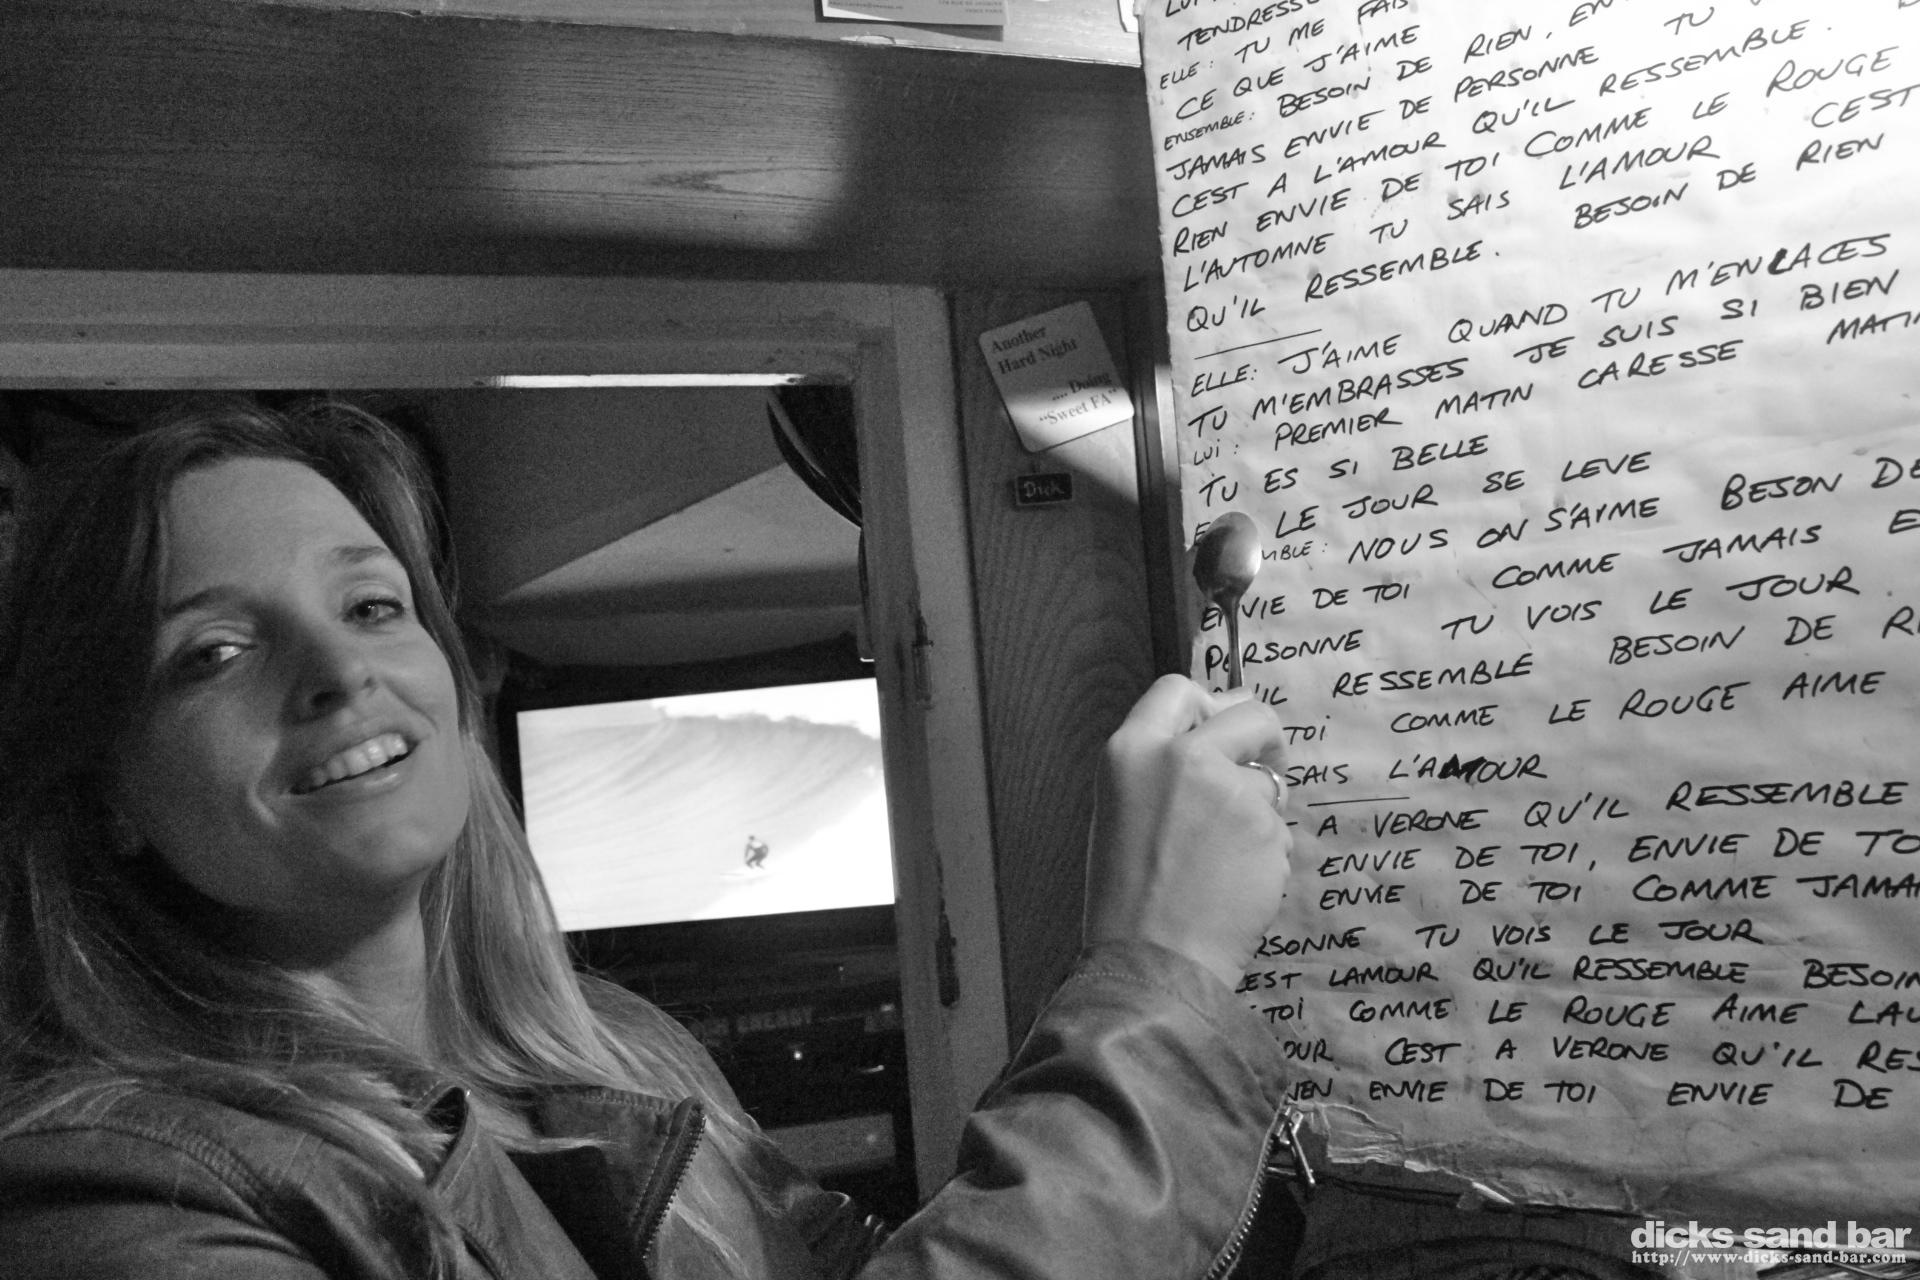 TENDRESSE
ELLE: TU ME FAIS
CE QUE J'AIME TU
ENSEMBLE: BESOIN DE RIEN, ENVIE
JAMAIS ENVIE DE PERSONNE
CEST A L'AMOUR QU'IL RESSEMBLE.
RIEN ENVIE DE TOI COMME LE ROUGE
L'AUTOMNE TU SAIS L'AMOUR CEST
QU'IL RESSEMBLE. BESOIN DE RIEN
ELLE: J'AIME QUAND TU M'ENLACES
TU M'EMBRASSES JE SUIS SI BIEN
LUI: PREMIER MATIN CARESSE MATIN
TU ES SI BELLE
LE JOUR SE LEVE
MBLE: NOUS ON S'AIME BESOIN DE
ENVIE DE TOI COMME JAMAIS E
PERSONNE TU VOIS LE JOUR.
QU'IL RESSEMBLE BESOIN DE RI
TOI COMME LE ROUGE AIME
SAIS L'AMOUR
A VERONE QU'IL RESSEMBLE
ENVIE DE TOI, ENVIE DE TO
ENVIE DE TOI COMME JAMAI
RSONNE TU VOIS LE JOUR
EST LAMOUR QU'IL RESSEMBLE BESOIN
TOI COMME LE ROUGE AIME LAU
OUR CEST A VERONE QU'IL RES
IEN ENVIE DE TOI ENVIE DE
Another
Hard Night
.... Doing
"Sweet FA"
Dick
dicks sand bar
http://www.dicks-sand-bar.com